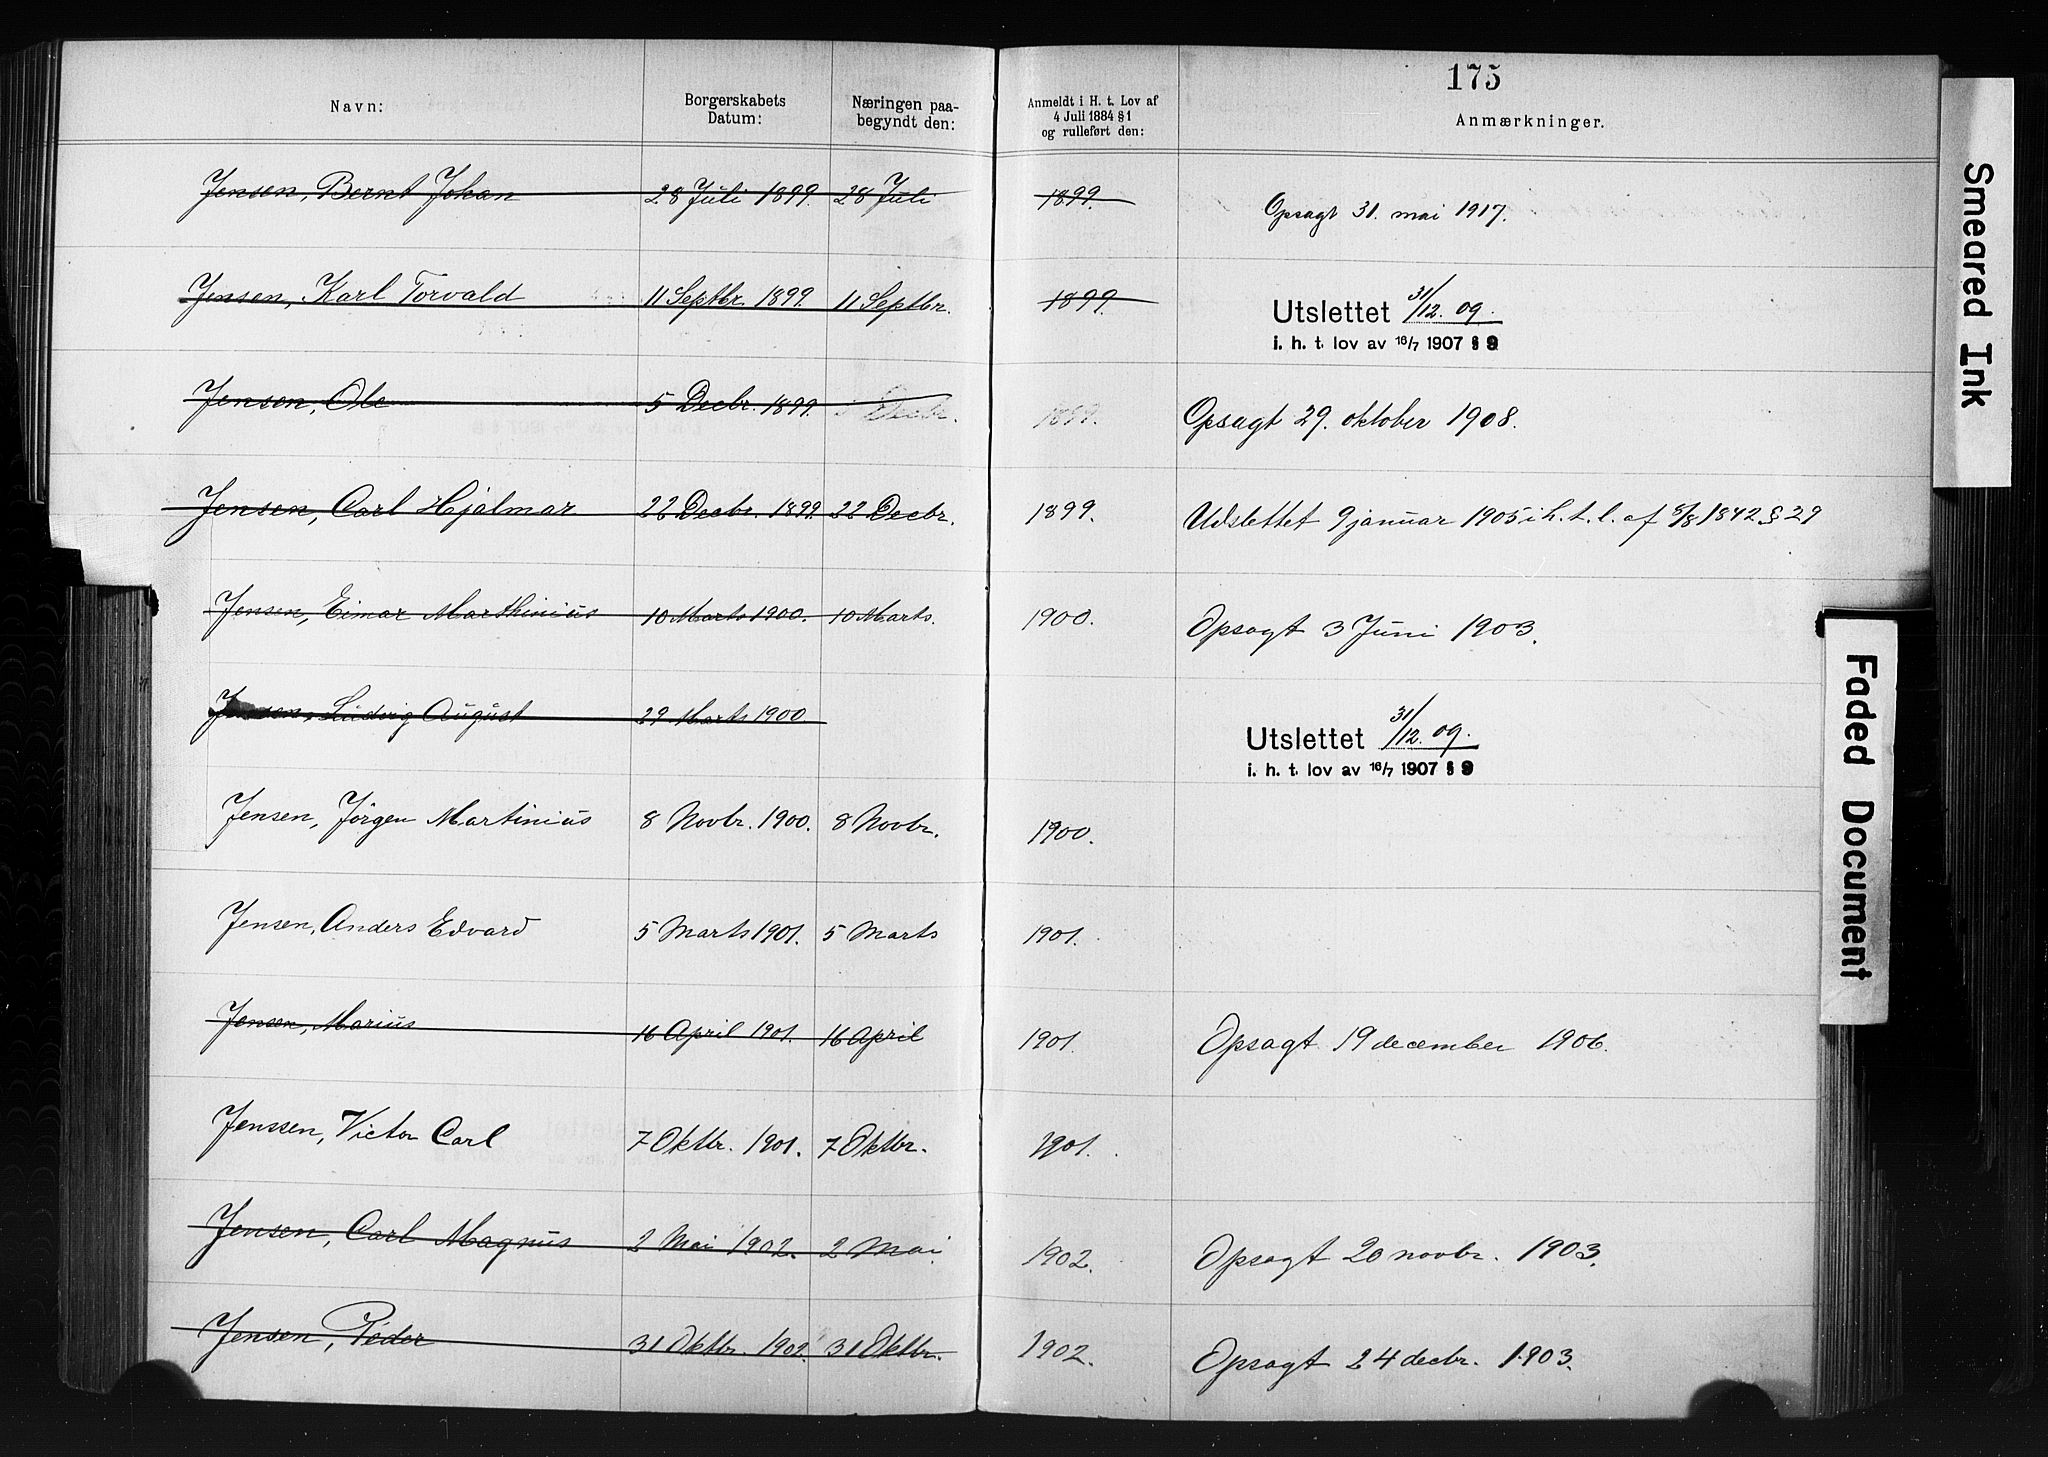 175
Navn: Borgerskabets Datum: Næringen paa-begyndt den: Anmeldt i H. t. Lov af 4 Juli 1884 § 1 og rulleført den: Anmærkninger.
Jensen, Bernt Johan 28 Juli 1899. 28 Juli 1899. Opsagt 31. mai 1917.
Jensen, Karl Torvald 11 Septbr. 1899. 11 Septbr. 1899. Utslettet 31/12. 09.
i. h. t. lov av 16/7 1907 § 9
Jensen, Ole 5 Decbr. 1899. 5 Decbr. 1899. Opsagt 29. oktober 1908.
Jensen, Carl Hjalmar 22 Decbr. 1899. 22 Decbr. 1899. Udslettet 9 januar 1905 i h. t. l. af 5/8 1842 § 29
Jensen, Einar Marthinius 10 Marts 1900. 10 Marts. 1900. Opsagt 3 Juni 1903.
Jensen, Ludvig August 29 Marts 1900 Utslettet 31/12. 09.
i. h. t. lov av 16/7 1907 § 9
Jensen, Jörgen Martinius 8 Novbr. 1900. 8 Novbr. 1900.
Jensen, Anders Edvard 5 Marts 1901. 5 Marts 1901.
Jensen, Marius 16 April 1901. 16 April 1901. Opsagt 19 december 1906.
Jenssen, Victor Carl 7 Oktbr. 1901. 7 Oktbr. 1901.
Jensen, Carl Magnus 2 Mai 1902. 2 Mai 1902. Opsagt 20 novbr. 1903.
Jensen, Peder 31 Oktbr. 1902. 31 Oktbr. 1902. Opsagt 24 decbr. 1903.
Smeared Ink
Faded Document